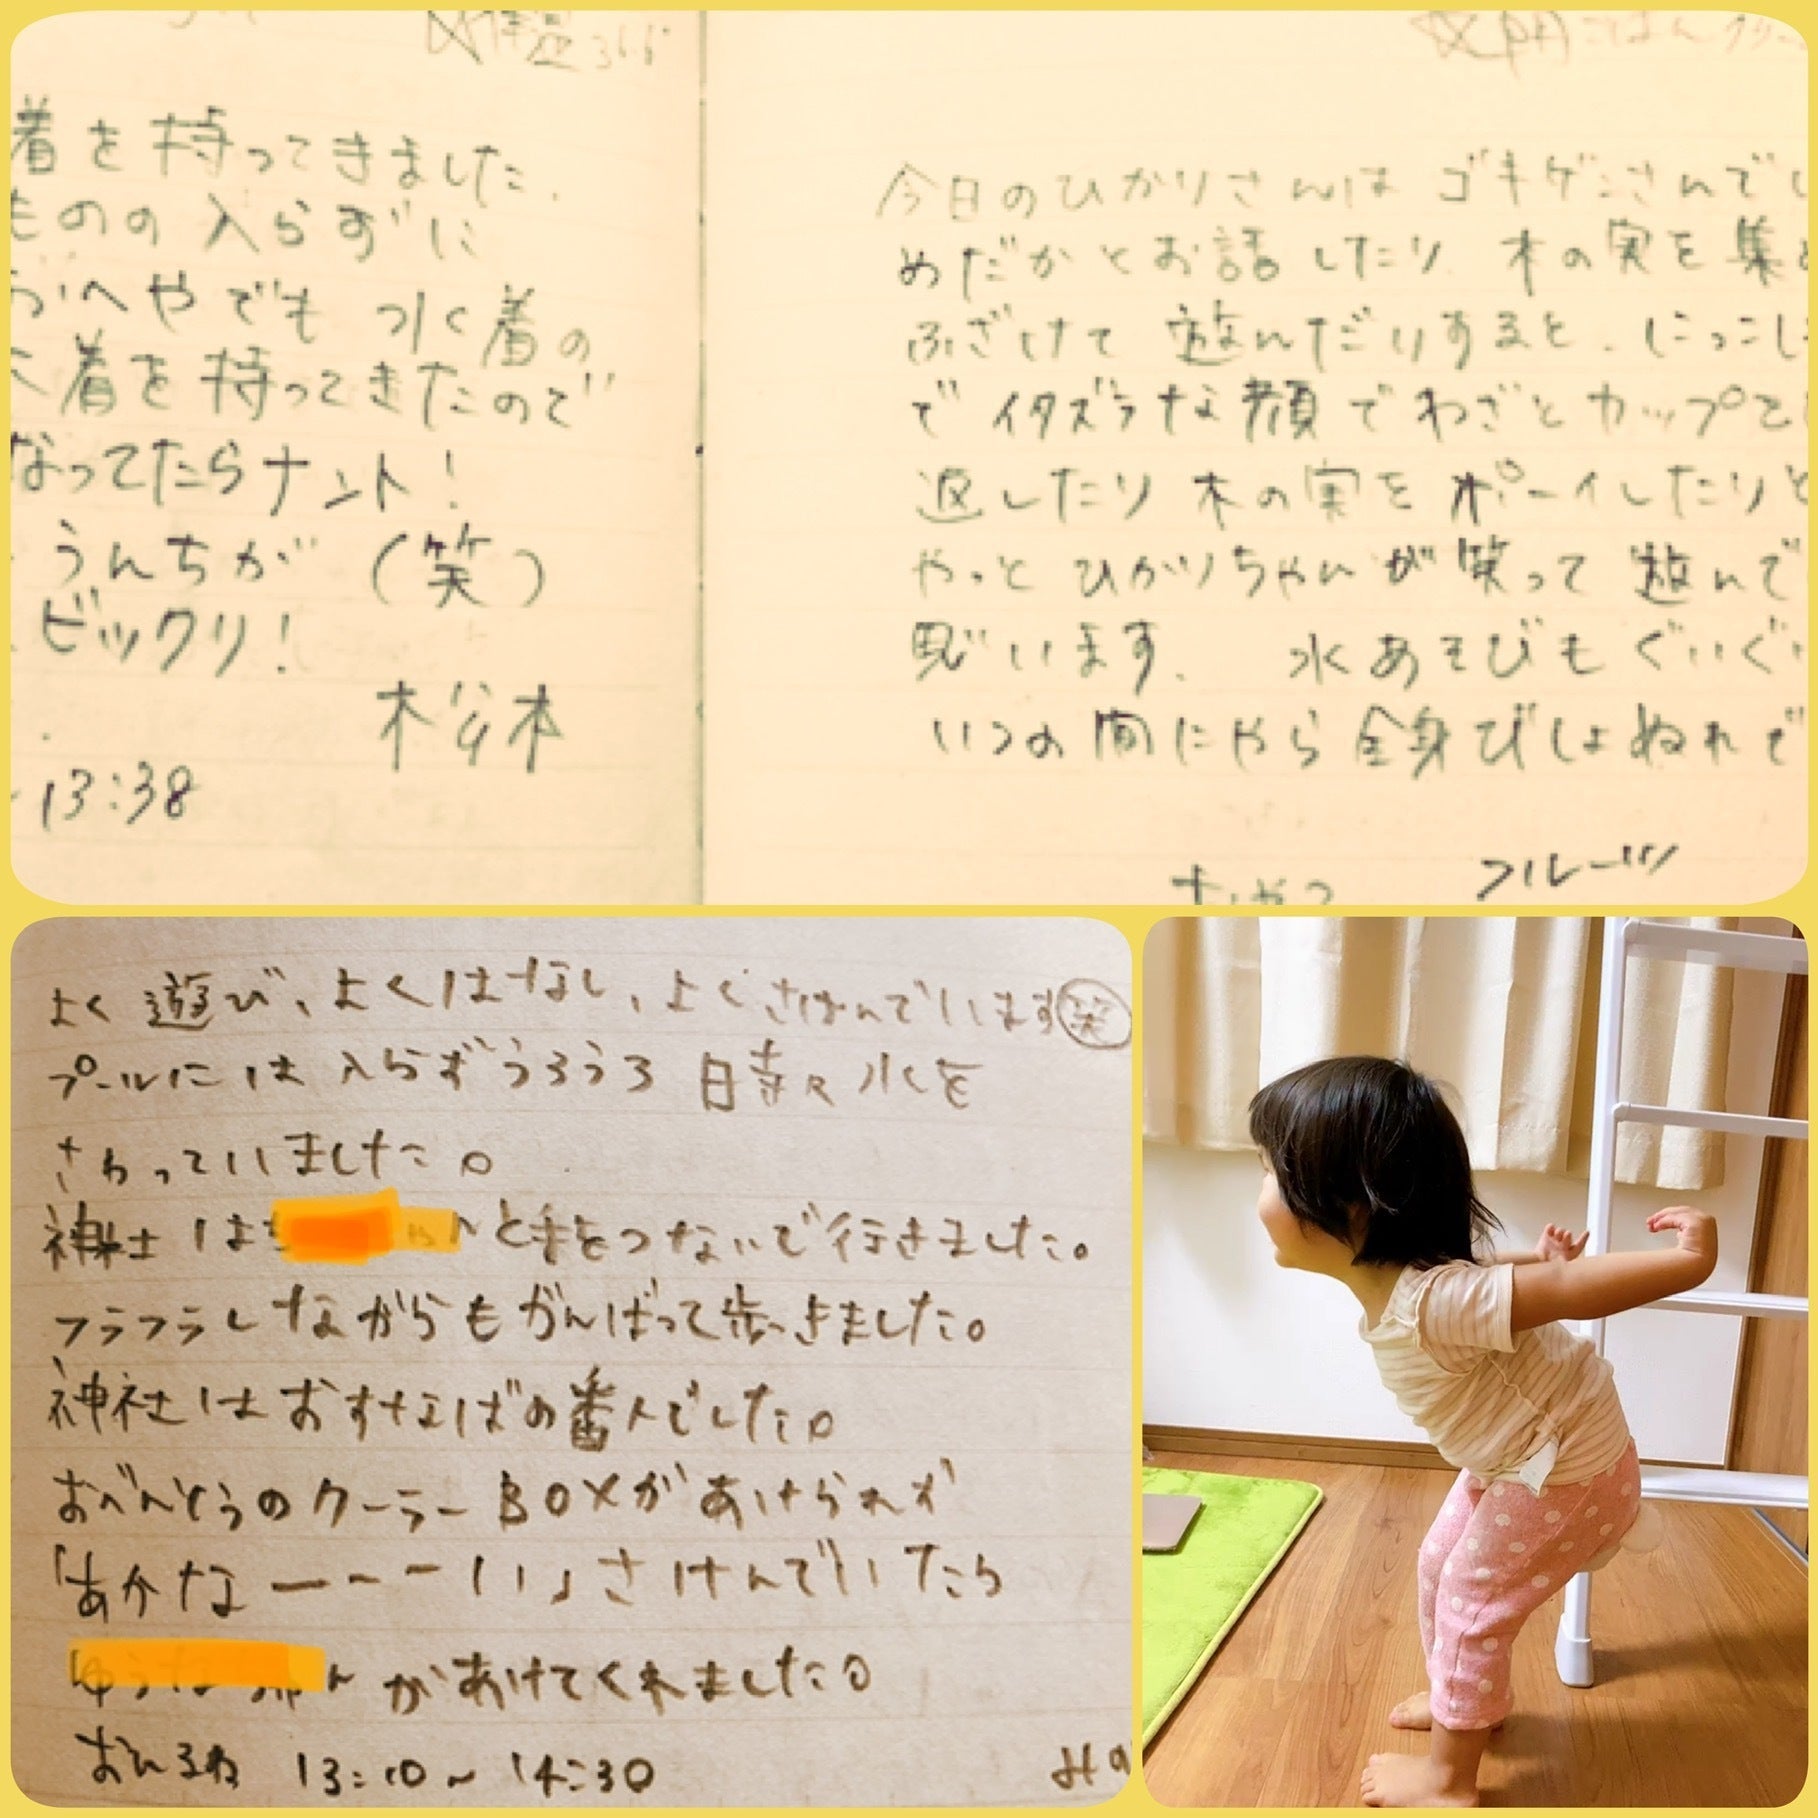 体温 36.6°
着を持ってきました.
ものの入らずに
おへやでも 水着の
着を持ってきたので
なってたらナント!
うんちが(笑)
ビックリ!
松本
13:38
ごはん
今日のひかりさんは ゴキゲンさんで
めだかとお話したり 木の実を集
ふざけて 遊んだりすると、にっこ
で イタズラな顔でわざとカップで
返したり 木の実を ポーイしたりと
やっと ひかりちゃんが笑って 遊んで
思います. 水あそびもぐいぐい
いつの間にやら全身びしょぬれで
おやつ フルーツ
よく遊び、よくはなし、よくさけんでいます(笑)
プールには入らずうろうろ 時々水を
さわっていました。
神社は と手をつないで行きました。
フラフラしながらもがんばって歩きました。
神社はおすなばの番人でした。
おべんとうのクーラーBOXがあけられず
「あかなーーーい」さけんでいたら
があけてくれました。
おひるね 13:10~14:30